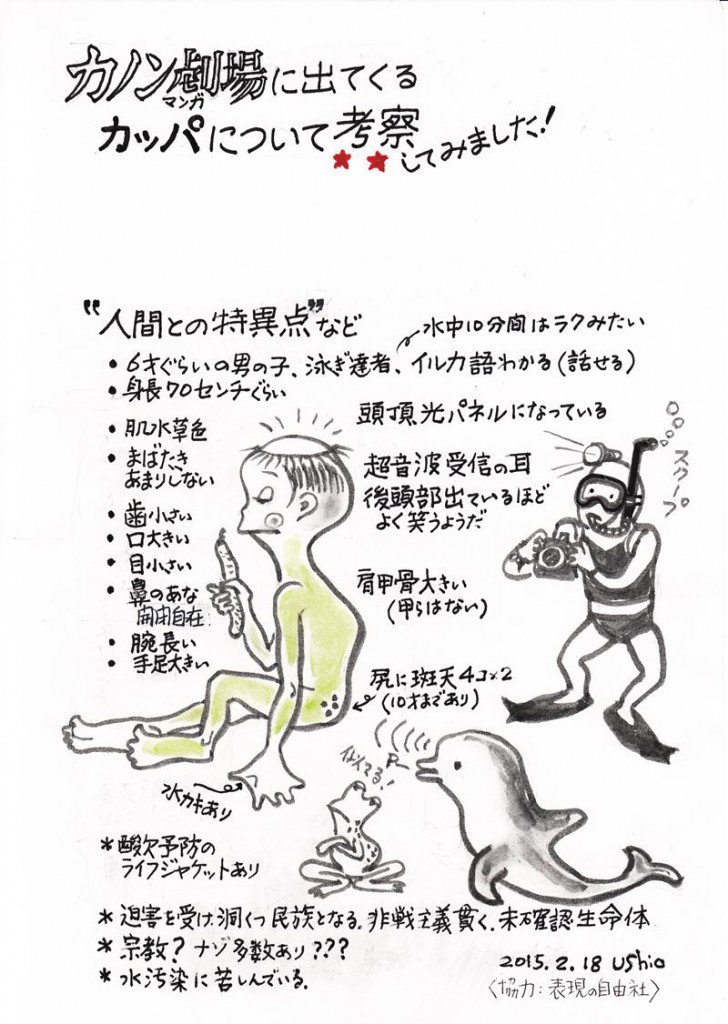 カノン劇場に出てくる
マンガ
カッパについて考察してみました!
"人間との特異点"など
水中10分間はラクみたい
• 6才ぐらいの男の子、泳ぎ達者、イルカ語わかる(話せる)
• 身長70センチぐらい
頭頂光パネルになっている
• 肌水草色
• まばたき
あまりしない
超音波受信の耳
後頭部出ているほど
よく笑うようだ
スクープ
• 歯小さい
• 口大きい
• 目小さい
• 鼻のあな
開閉自在
肩甲骨大きい
(甲らはない)
• 腕長い
• 手足大きい
尻に斑天4コ×2
(10才まであり)
水カキあり
似てる!
*酸欠予防の
ライフジャケットあり
*迫害を受け、洞くつ民族となる。非戦主義貫く、未確認生命体
*宗教?ナゾ多数あり???
*水汚染に苦しんでいる。
2015.2.18 Ushio
〈協力:表現の自由社〉